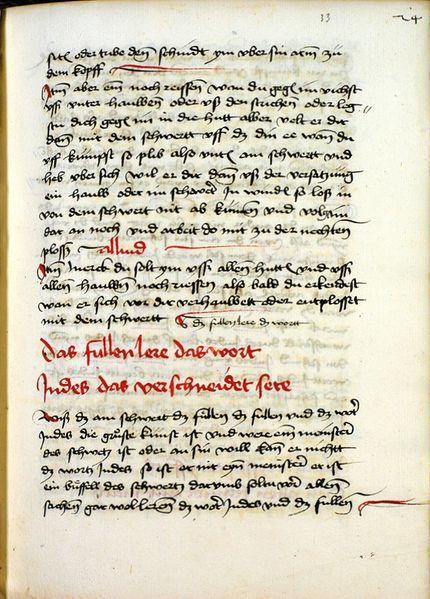 sitt oder tribe den schnidt ym vber sin arm zu
dem kopff
Itm aber ein noch reissen wan du gegen im vichst
vss vnter hauwen oder vß den strichen oder leg
stu dich gegen im in die hutt alber velt er dir
dann mit dem schwertt vff dz din ee wan du
vff kumpst so plib also vnten am schwertt vnd
heb vber sich wil er dir dann vß der versatzung
ein hauw oder im schwert In winden so loß in
von dem schwert nit ab kumen vnd volg im
dar an noch vnd arbeit do mit zu der nechsten
plossz Alliud
Itm merck du solt ym vssz allen hutten vnd vssz
allen hauwen noch reissen also bald du erkendest
wan er sich vor dir verhauwett oder entplosset
mit dem schwertt dz fullen lere dz wortt
Das fullen lere das wort
Indes das verschneidet sere
Weiß dz am schwert dz fullen dz fullen vnd dz wort
Indes die größte kunst ist vnd were ein meinster
des schwertz ist oder an sin woll kan er nichtt
dz wortt Indes so ist er nit ein meinster er ist
ein buffell des schwertz dar vmb soltu vor allen
sachen gar wol leren dz wort Indes vnd dz fullen
33
24